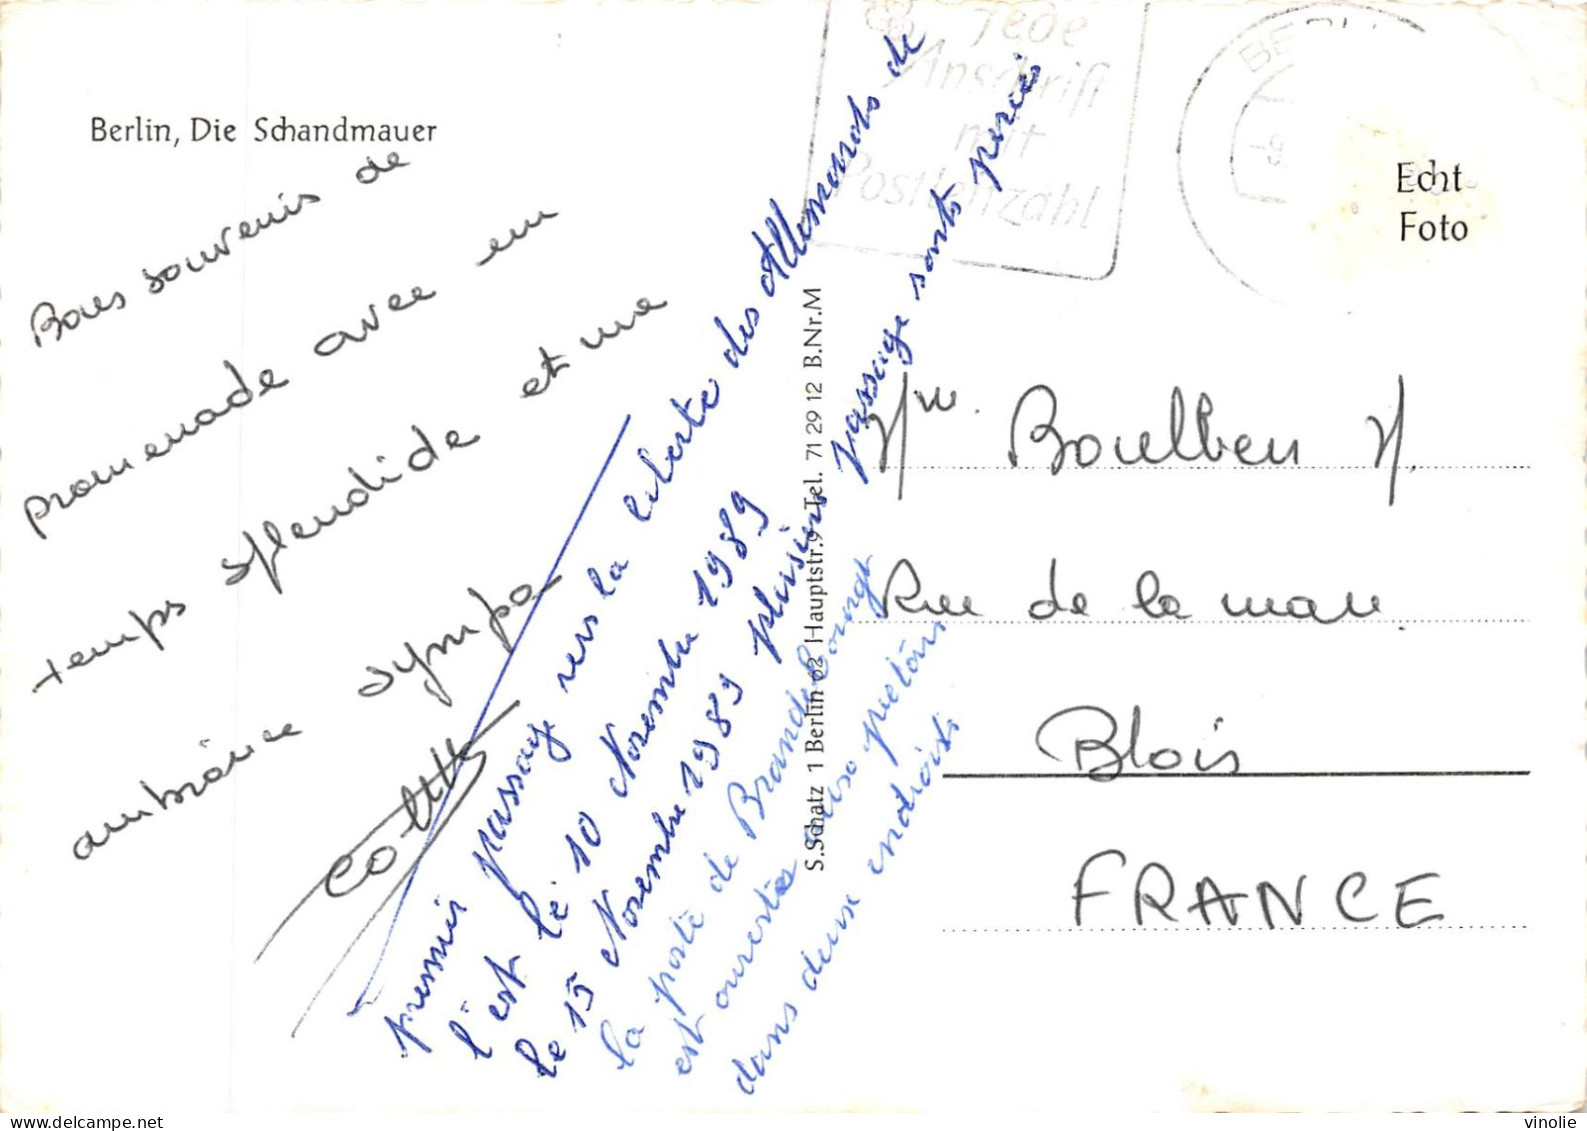 Berlin, Die Schandmauer
Bons souvenis de
promenade avec un
temps splendide et une
ambiance sympa
Colette
premier passage vers la liberté des Allemands de
l'est le 10 Novembre 1989
le 15 Novembre 1989 plusieurs passage sonts percés
la porte de Brandebourg
est ouverte piétons
dans deux endroits
S.Schatz 1 Berlin 62 Hauptstr.9 Tel. 71 29 12 B.Nr.M
Jede
Anschrift
mit
Postleitzahl
BERLIN
-9
Echt
Foto
Boulben M.
Rue de la mare
Blois
FRANCE
vinolie